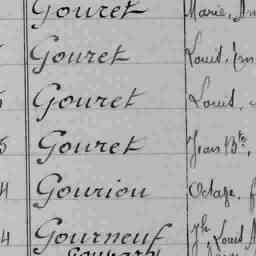 Gouret Marie,
Gouret Louis,
Gouret Louis,
5 Gouret Jean Bte,
4 Gouriou Octave, f
4 Gourneuf Jh, Louis